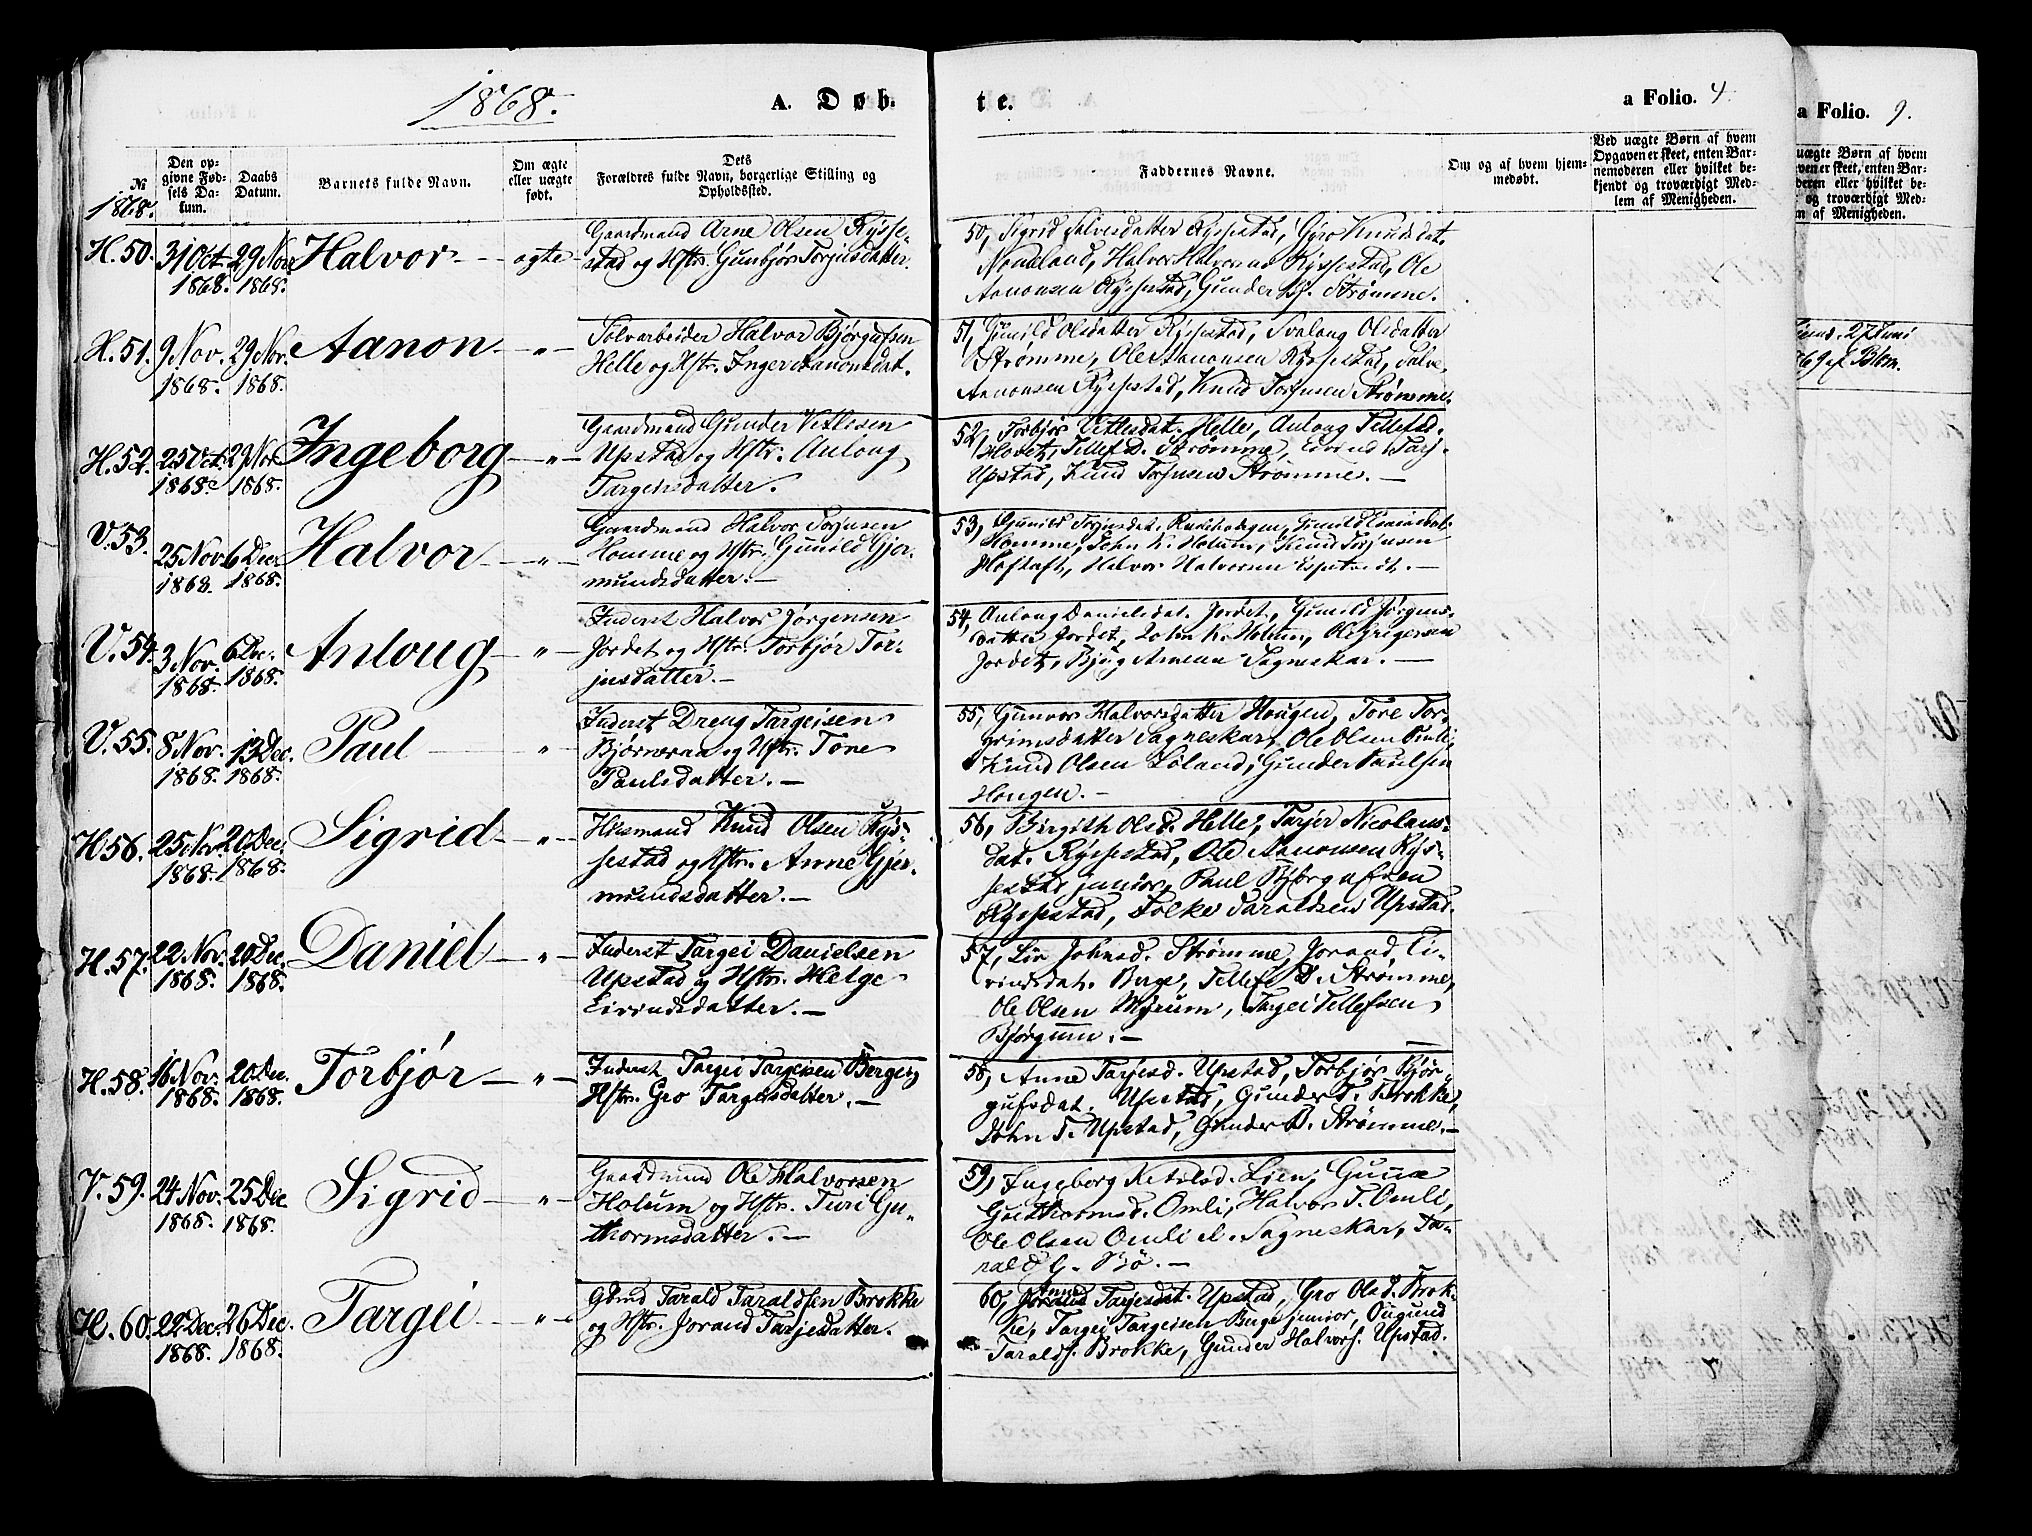 1868.
A. Døb-
te.
a Folio. 4.
№
1868.
Den op-
givne Fød-
sels Da-
tum.
Daabs
Datum.
Barnets fulde Navn.
Om ægte
eller uægte
født.
Dets
Forældres fulde Navn, borgerlige Stilling og
Opholdssted.
Faddernes Navne.
Om og af hvem hjem-
medøbt.
Ved uægte Børn af hvem
Opgaven er skeet, enten Bar-
nemoderen eller hvilket be-
kjendt og troværdigt Med-
lem af Menigheden.
H. 50. 31 Oct. 1868. 29 Nov. 1868. Halvor ægte
Gaardmand Arne Olsen Rysse-
stad og Hstr. Gunbjør Torjusdatter.
50, Sigrid Salvesdatter Ryssestad, Gyro Knudsdat.
Nomeland, Halvor Halvorsen Ryssestad, Ole
Aanonsen Ryssestad, Gunder Strømme.
H. 51. 9 Nov. 1868. 29 Nov. 1868. Aanon "
Sølvarbeider Halvor Bjørgufsen
Helle og Hstr. Inger Aanonsdat.
51, Gunild Olsdatter Ryssestad, Svalaug Olsdatter
Strømme, Ole Aanonsen Ryssestad, Salve
Aanonsen Ryssestad, Knud Torjusen Strømme.
H. 52. 25 Oct. 1868. 29 Nov. 1868. Ingeborg "
Gaardmand Gunder Vetlesen
Upstad og Hstr. Anloug
Targeisdatter.
52, Torbjør Vetlesdat. Helle, Anloug Tellefsd.
Tellef D. Strømme, Eivind Tarj.
Upstad, Knud Torjusen Strømme. —
V. 53. 25 Nov. 1868. 6 Dec. 1868. Halvor "
Gaardmand Halvor Torjusen
Homme og Hstr. Gunild Gjer-
mundsdatter. —
53, Gunild Torjusdat. Gunild
Homme, John K. Holum, Knud Torjusen
Halvor Halvorsen —
V. 54. 3 Nov. 1868. 6 Dec. 1868. Anloug "
Inderst Halvor Jørgensen
Jordet og Hstr. Torbjør Tor-
jusdatter. —
54, Anloug Danielsdat. Jordet, Gunild Jørgens-
datter Jordet, John K. Holum, Ole Grigersen
Jordet, Bjug Arnesen Sagneskar. —
V. 55. 8 Nov. 1868. 13 Dec. 1868. Paul "
Inderst Dreng Targeisen
Bjørneraa og Hstr. Tone
Paulsdatter. —
55, Gunvor Halvorsdatter Hougen, Tore Tor-
grimsdatter Sagneskar, Ole Olsen Omli,
Knud Olsen Løland, Gunder Paulsen
Hougen. —
H. 56. 25 Nov. 1868. 20 Dec. 1868. Sigrid "
Huusmand Knud Olsen Rys-
sestad og Hstr. Anne Gjer-
mundsdatter. —
56, Birgith Olsd. Helle, Tarjer Nicolaus-
dat. Ryssestad, Ole Aanonsen Rys-
sestad junior, Paul Bjørgufsen
Ryssestad, Folke Taraldsen Upstad.
H. 57. 22 Nov. 1868. 20 Dec. 1868. Daniel "
Inderst Targei Danielsen
Upstad og Hstr. Helge
Eivindsdatter. —
57, Liv Johnsd. Strømme, Jorand Ei-
vindsdat. Berge, Tellef D. Strømme,
Ole Olsen Myrum, Targei Tellefsen
Bjørgum. —
H. 58. 16 Nov. 1868. 20 Dec. 1868. Torbjør "
Inderst Targei Targeisen Berge og
Hstr. Gro Targeisdatter. —
58, Anne Tarjesd. Upstad, Torbjør Bjør-
gufsdat. Upstad, Gunder T. Brokke,
John T. Upstad, Gunder B. Strømme. —
V. 59. 24 Nov. 1868. 25 Dec. 1868. Sigrid "
Gaardmand Ole Halvorsen
Holum og Hstr. Turi Gu-
thormsdatter. —
59, Ingeborg Ketilsd. Lien, Gunne
Guthormsd. Omli, Halvor T. Omli,
Ole Olsen Omli el. Sagneskar, Ta-
rald G. Bø. —
H. 60. 22 Dec. 1868. 26 Dec. 1868. Targei "
Gbmd Tarald Taraldsen Brokke
og Hstr. Jorand Tarjesdatter.
60, Anne Tarjesdat. Upstad, Gro Olsd. Brok-
ke, Targei Targeisen Berge junior, Ougund
Taralds. Brokke, Gunder Halvors. Upstad.
a Folio. 9.
uægte Børn af hvem
ven er skeet, enten Bar-
deren eller hvilket be-
og troværdigt Med-
m af Menigheden.
27 Juni
69 af Blom.